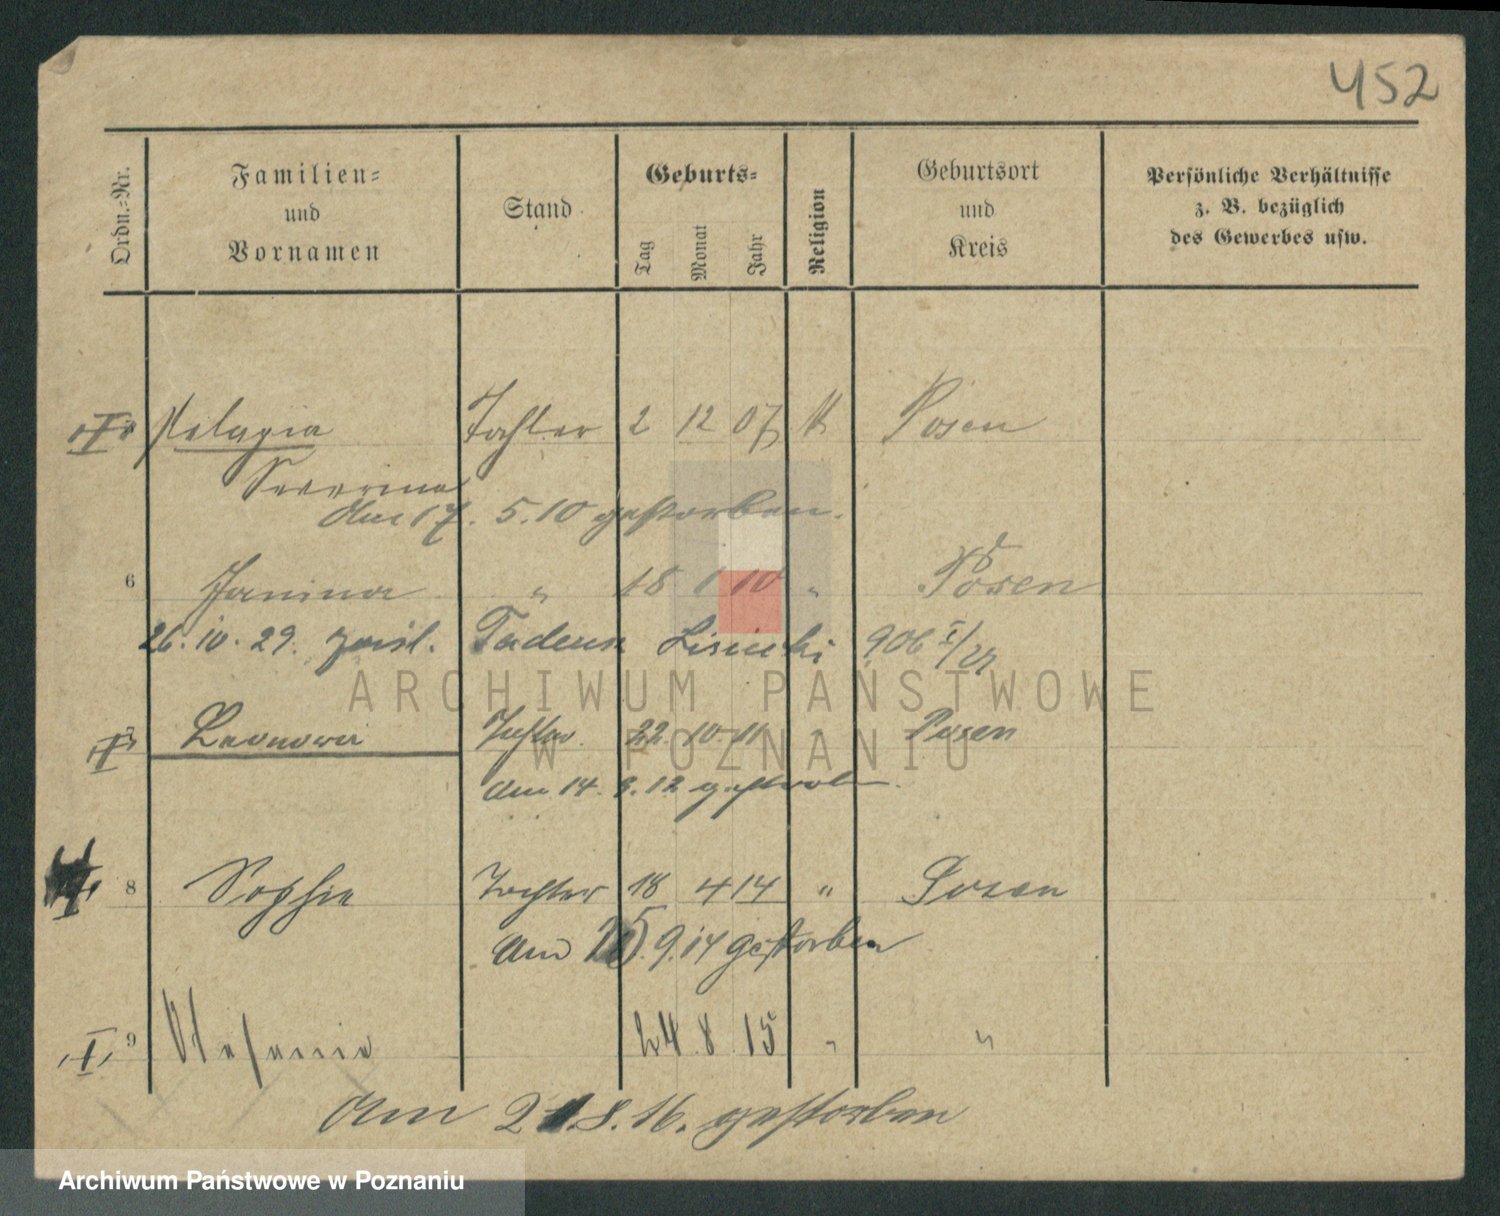 452
Ordn.-Nr.
Familien- und Vornamen
Stand
Geburts-
Tag Monat Jahr
Religion
Geburtsort und Kreis
Persönliche Verhältnisse z. B. bezüglich des Gewerbes usw.
Pelagia Tochter 2 12 07 K Posen
Severina
Am 17. 5. 10 gestorben.
6 Janina " 18 1 10 " Posen
26. 10. 29. Tadeusz 906 I/29
7 Leonora Tochter 22 10 11 " Posen
am 14. 12 gestorben.
8 Sophie Tochter 18 4 14 " Posen
Am 25. 9. 14 gestorben
9 Stefania 24 8 15 " "
Am 21. 8. 16. gestorben
ARCHIWUM PAŃSTWOWE
W POZNANIU
Archiwum Państwowe w Poznaniu